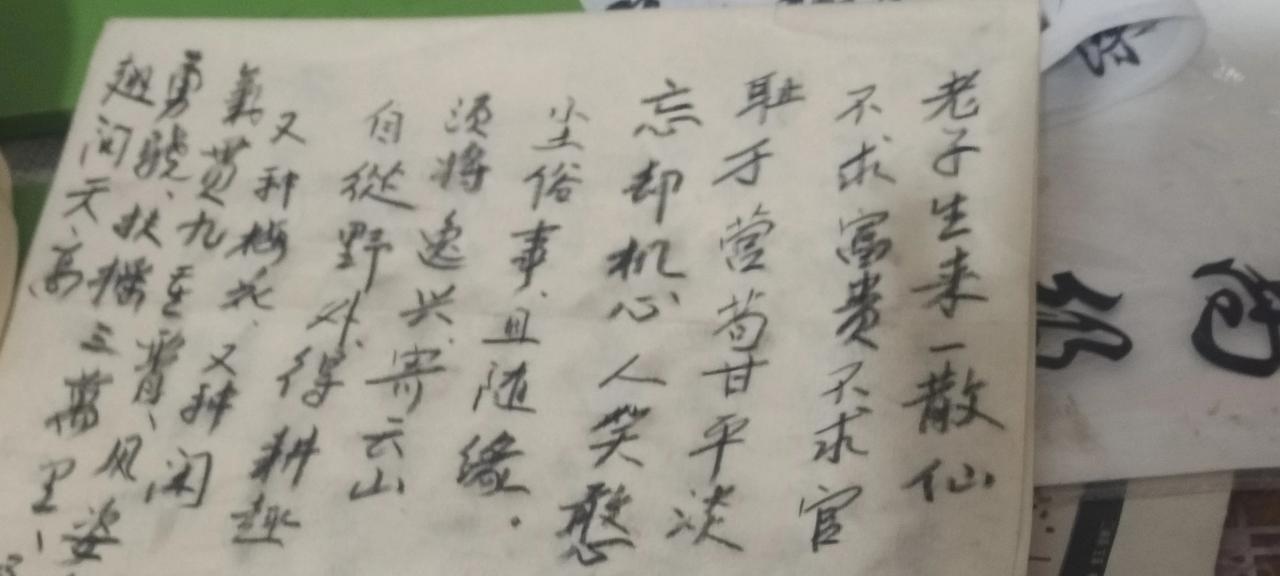 老子生来一散仙
不求富贵不求官
耻于营苟甘平淡
忘却机心人笑憨
尘俗事、且随缘。
须将逸兴寄云山
自從野外得耕趣
又种梅花、又种闲
氣贯九重霄、
勇驍、扶摇风姿
翅问天、高三萬里、